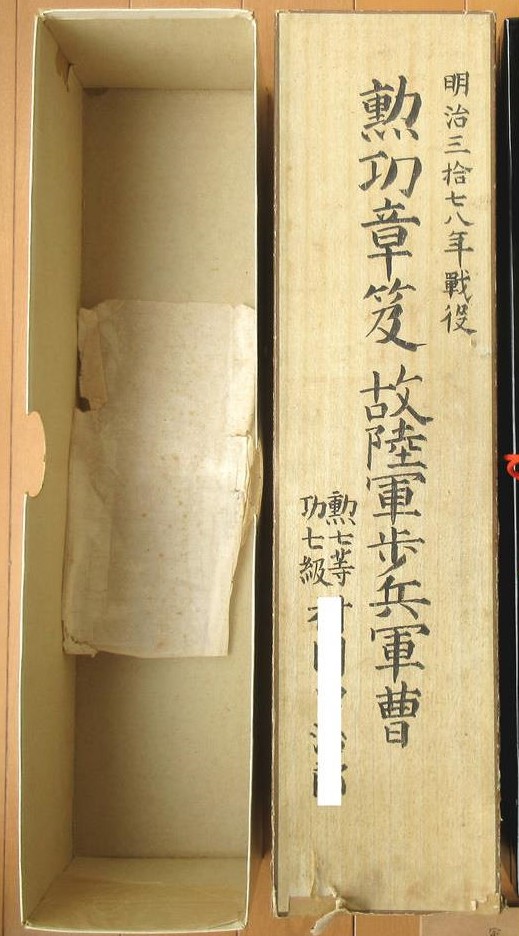 明治三拾七八年戰役
勲功章笈 故陸軍歩兵軍曹
勲七等
功七級